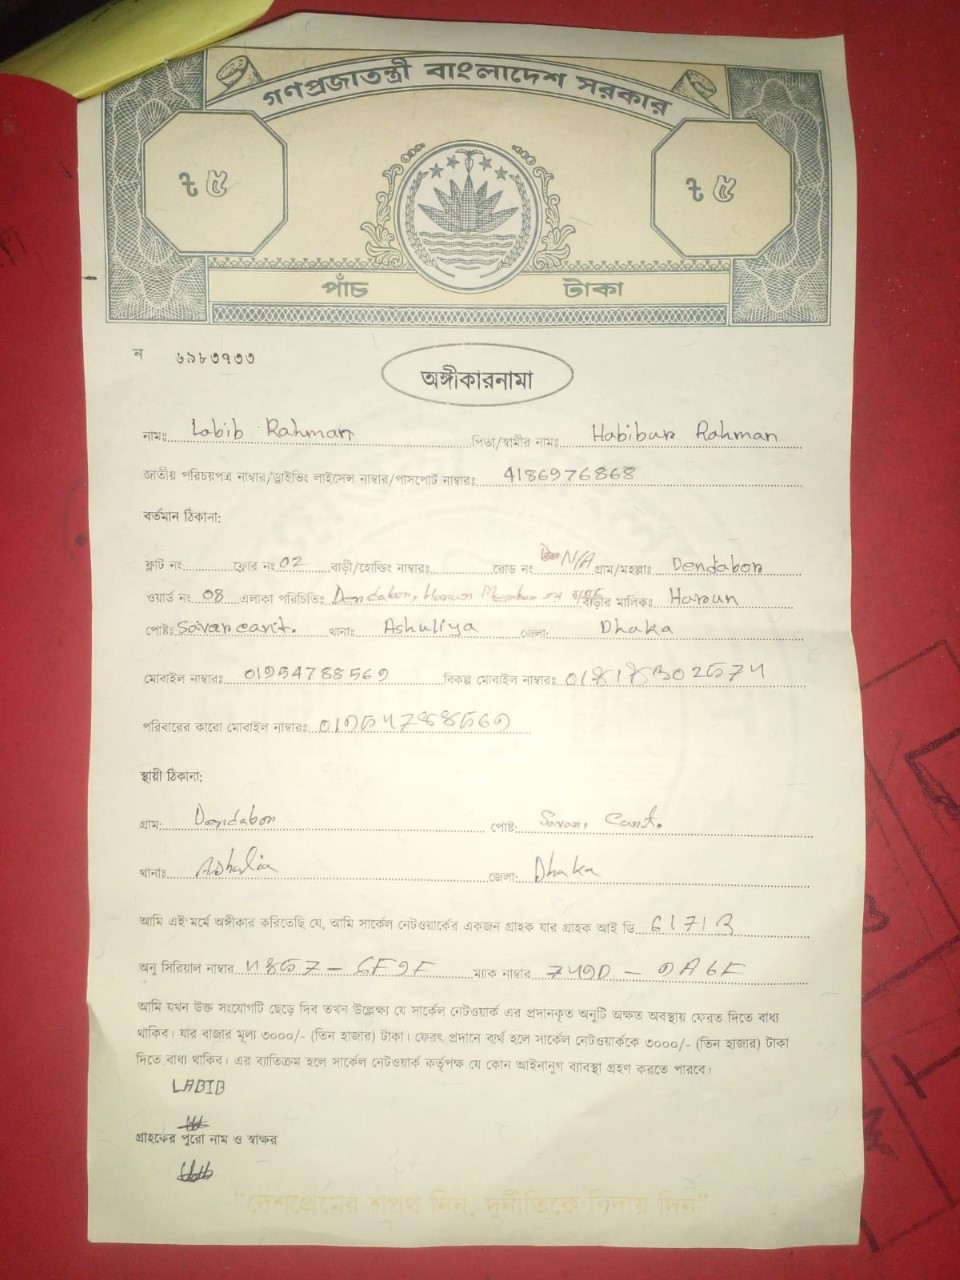 গণপ্রজাতন্ত্রী বাংলাদেশ সরকার
৳ ৫ ৳ ৫
পাঁচ টাকা
ন ৬৯৮৩৭৩৩
অঙ্গীকারনামা
নামঃ Labib Rahman পিতা/স্বামীর নামঃ Habibur Rahman
জাতীয় পরিচয়পত্র নাম্বার/ড্রাইভিং লাইসেন্স নাম্বার/পাসপোর্ট নাম্বারঃ 4186976868
বর্তমান ঠিকানা:
ফ্লাট নং ফ্লোর নং 02 বাড়ী/হোল্ডিং নাম্বারঃ রোড নং N/A গ্রাম/মহল্লাঃ Dendabon
ওয়ার্ড নং 08 এলাকা পরিচিতিঃ Dendabon, Harun বাড়ীর মালিকঃ Harun
পোষ্টঃ Savar cant. থানাঃ Ashuliya জেলা: Dhaka
মোবাইল নাম্বারঃ বিকল্প মোবাইল নাম্বারঃ
পরিবারের কারো মোবাইল নাম্বারঃ
স্থায়ী ঠিকানা:
গ্রাম: Dendabon পোষ্ট: Savar, Cant.
থানাঃ Ashulia জেলা: Dhaka
আমি এই মর্মে অঙ্গীকার করিতেছি যে, আমি সার্কেল নেটওয়ার্কের একজন গ্রাহক যার গ্রাহক আই ডি
অনু সিরিয়াল নাম্বার ম্যাক নাম্বার
আমি যখন উক্ত সংযোগটি ছেড়ে দিব তখন উল্লেক্ষ্য যে সার্কেল নেটওয়ার্ক এর প্রদানকৃত অনুটি অক্ষত অবস্থায় ফেরত দিতে বাধ্য
থাকিব। যার বাজার মূল্য ৩০০০/- (তিন হাজার) টাকা। ফেরৎ প্রদানে ব্যর্থ হলে সার্কেল নেটওয়ার্ককে ৩০০০/- (তিন হাজার) টাকা
দিতে বাধ্য থাকিব। এর ব্যাতিক্রম হলে সার্কেল নেটওয়ার্ক কর্তৃপক্ষ যে কোন আইনানুগ ব্যাবস্থা গ্রহণ করতে পারবে।
LABIB
গ্রাহকের পুরো নাম ও স্বাক্ষর
"দেশপ্রেমের শপথ নিন, দুর্নীতিকে বিদায় দিন"